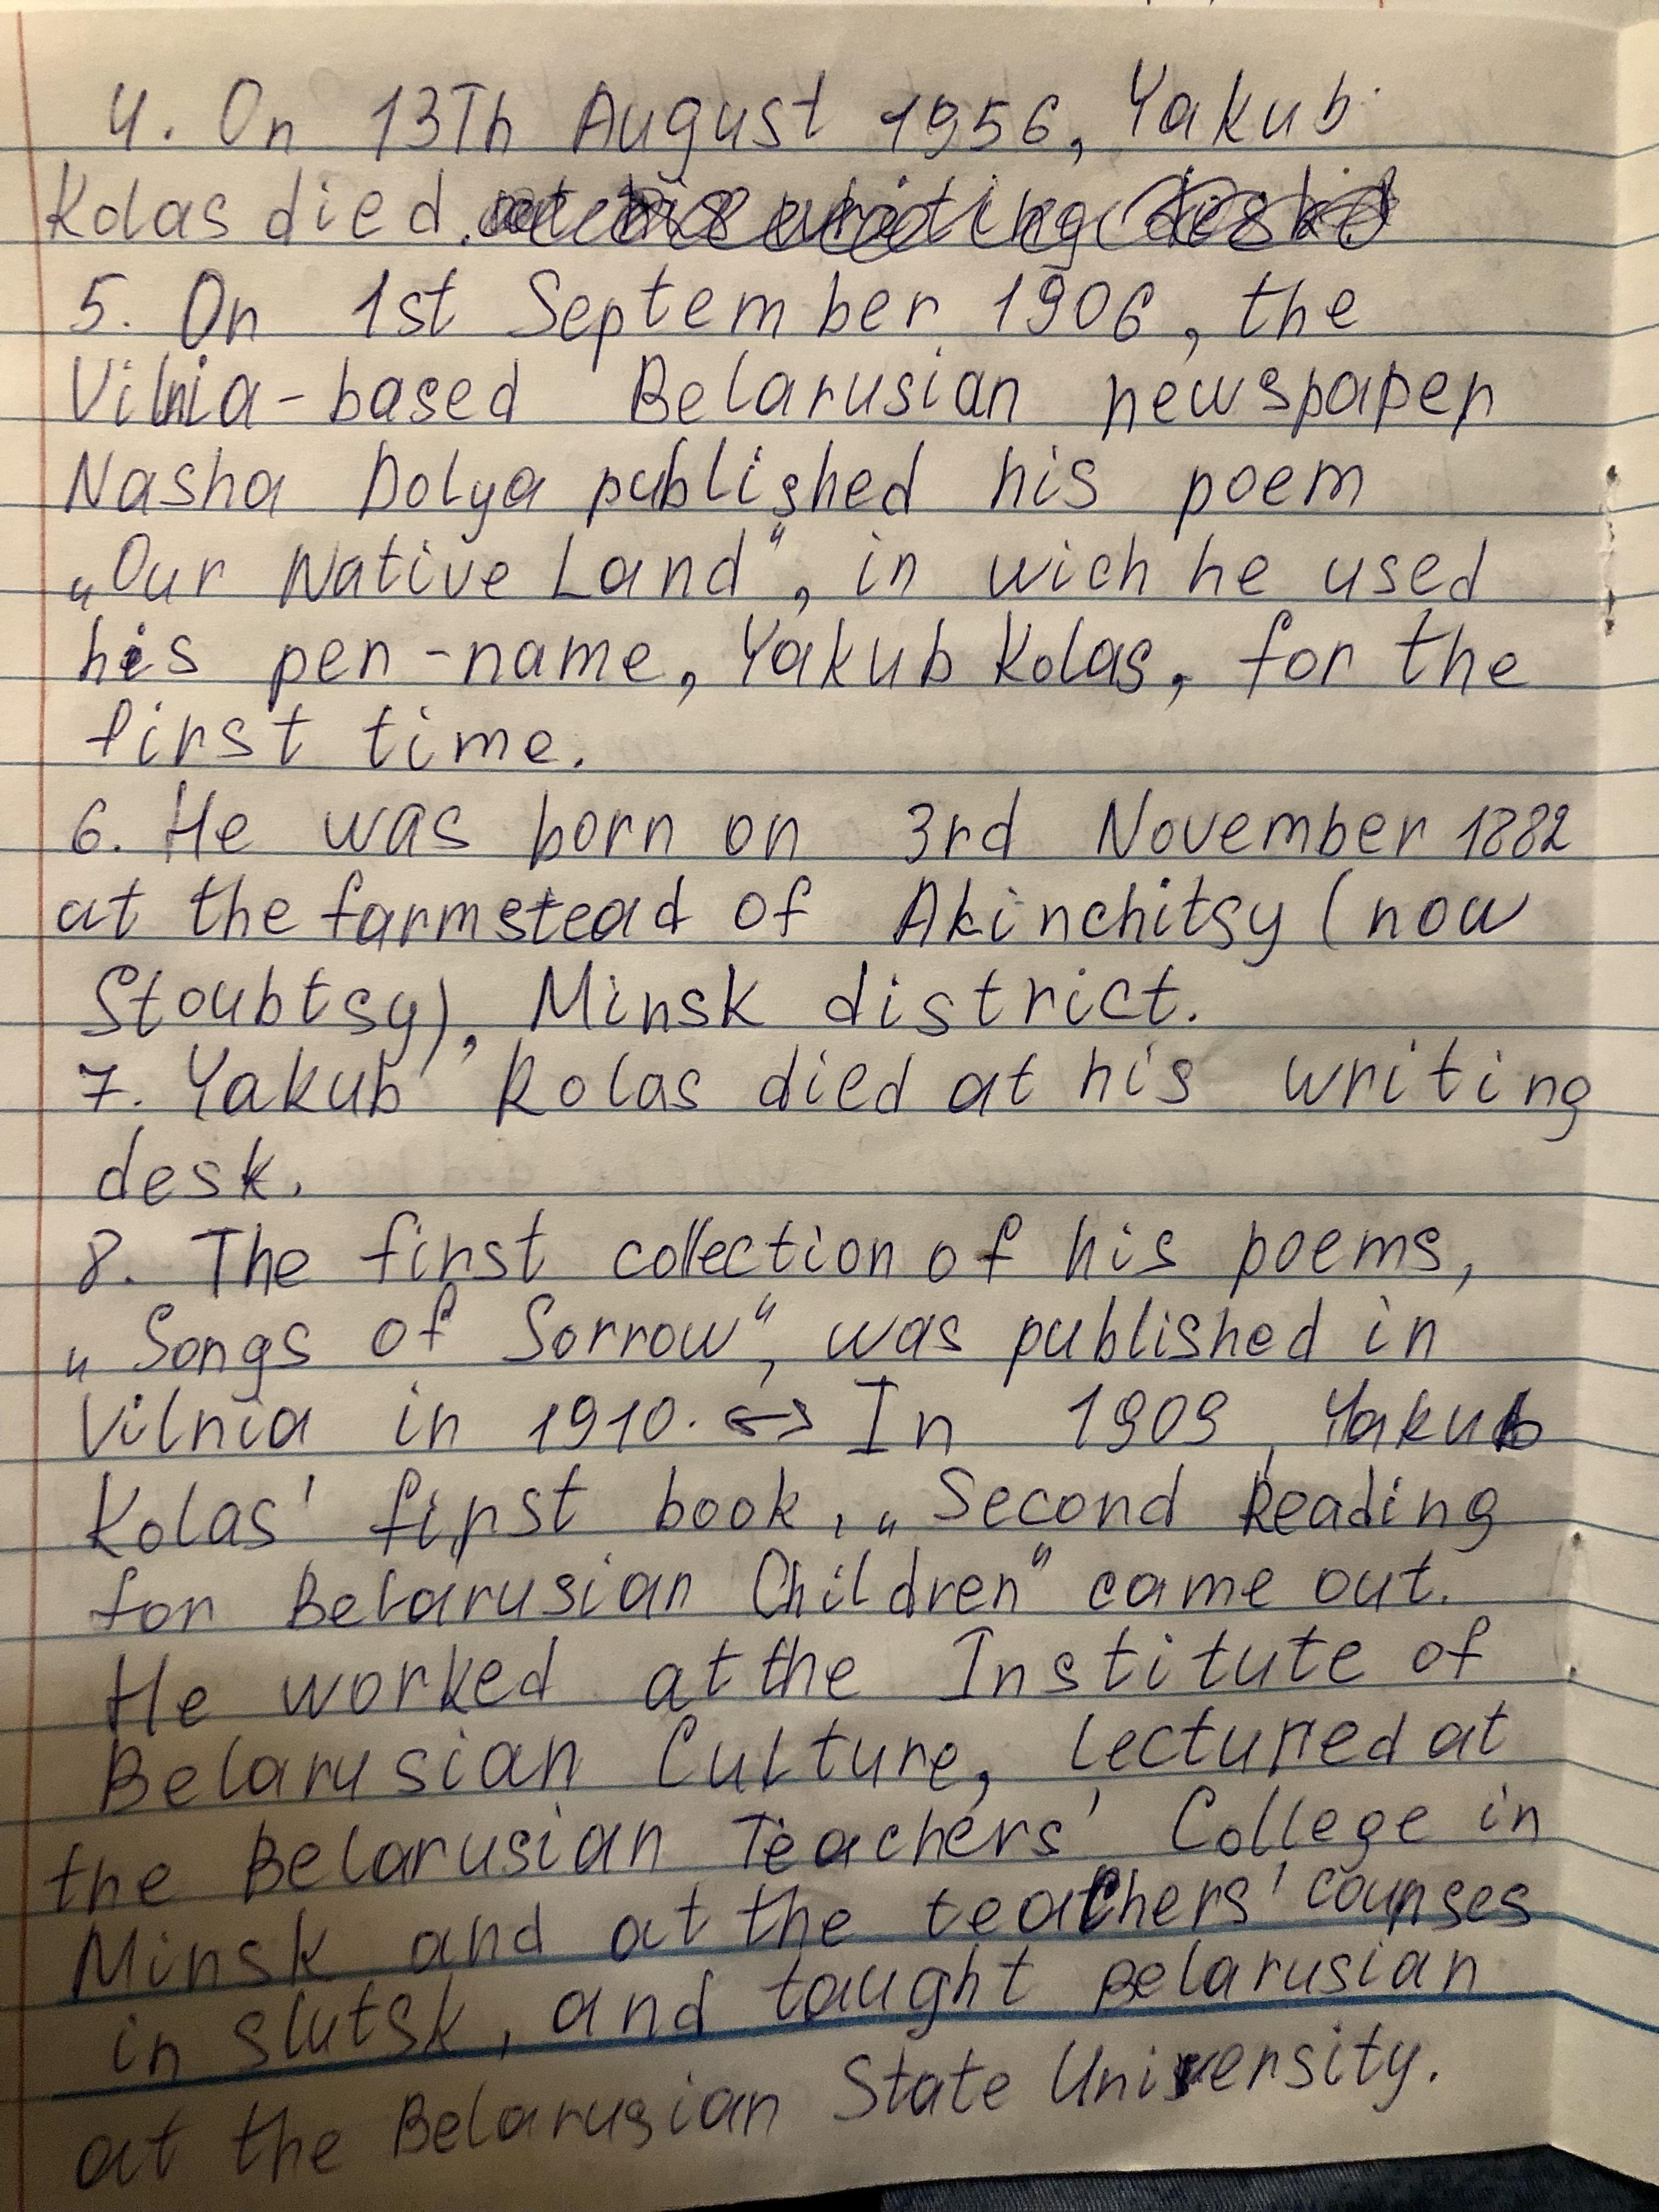 4. On 13Th August 1956, Yakub
Kolas died. at his writing desk.
5. On 1st September 1906, the
Vilnia-based Belarusian newspaper
Nasha Dolya published his poem
„Our Native Land“, in wich he used
his pen-name, Yakub Kolas, for the
first time.
6. He was born on 3rd November 1882
at the farmstead of Akinchitsy (now
Stoubtsy), Minsk district.
7. Yakub Kolas died at his writing
desk.
8. The first collection of his poems,
„Songs of Sorrow“, was published in
Vilnia in 1910. ↔ In 1909, Yakub
Kolas' first book, „Second Reading
for Belarusian Children“ came out.
He worked at the Institute of
Belarusian Culture, lectured at
the Belarusian Teachers' College in
Minsk and at the teachers' courses
in Slutsk, and taught Belarusian
at the Belarusian State University.